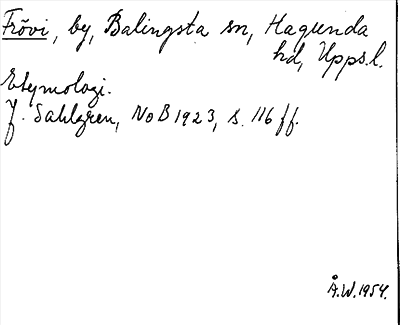 Frövi, by, Balingsta sn, Hagunda
hd, Upps.l.
Etymologi.
J. Sahlgren, NoB 1923, s. 116 ff.
Å.W. 1954.